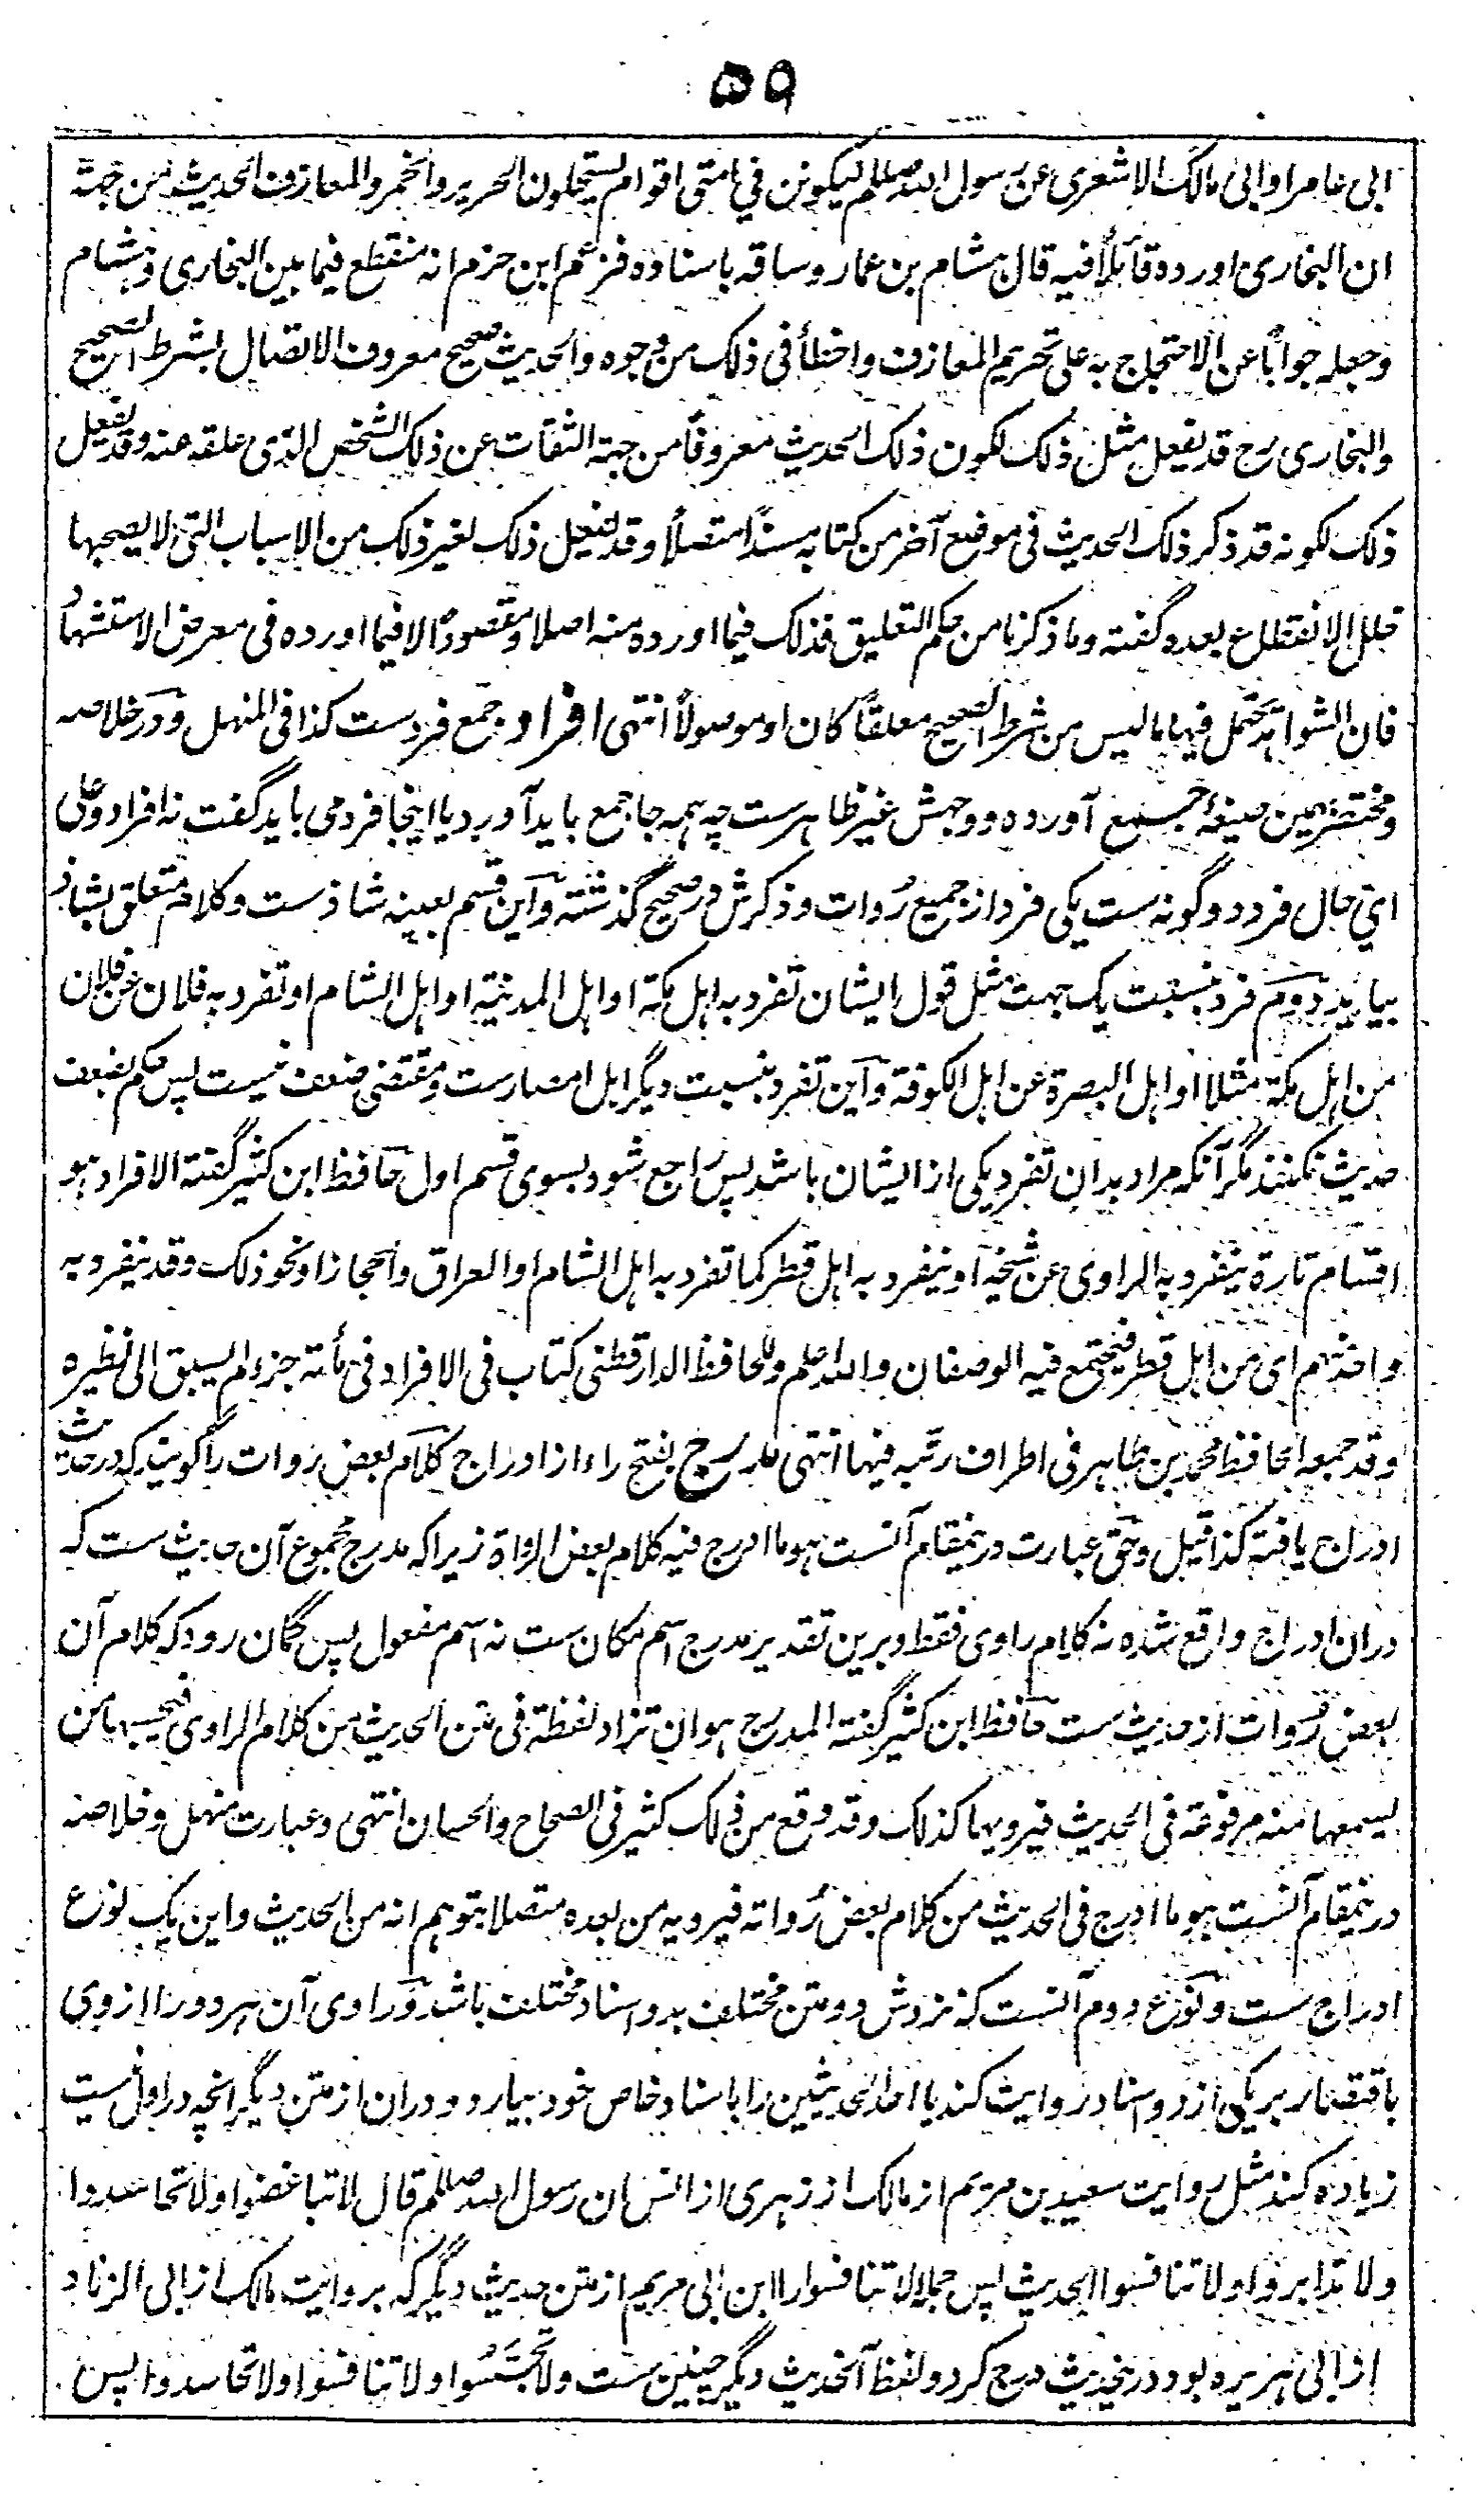 ۵۹
ابی عامر او ابی مالک الاشعری عن رسول الله صلعم لیکونن فی امتی اقوام یستحلون الحریر والخمر والمعازف الحدیث من جهة
ان البخاری اورده قائلاً فیه قال هشام بن عمار وساقه باسناده فزعم ابن حزم انه منقطع فیما بین البخاری وهشام
وجعله جواباً عن الاحتجاج به علی تحریم المعازف واخطأ فی ذلک من وجوه والحدیث صحیح معروف الاتصال بشرط الصحیح
والبخاری رح قد یفعل مثل ذلک لکون ذلک الحدیث معروفاً من جهة الثقات عن ذلک الشخص الذی علقه عنه وقد یفعل
ذلک لکونه قد ذکر ذلک الحدیث فی موضع آخر من کتابه مسنداً متصلاً وقد یفعل ذلک لغیر ذلک من الاسباب التی لا یصحبها
خلل الانقطاع بعده گفته وما ذکرنا من حکم التعلیق فذلک فیما اورده منه اصلا ومقصوداً لا فیما اورده فی معرض الاستشهاد
فان الشواهد یحتمل فیها ما لیس من شرط الصحیح معلقاً کان او موصولاً انتهی افراد جمع فردست کذا فی المنهل ودر خلاصه
ومختصر همین صیغهٔ جمع آورده ووجهش غیر ظاهرست چه همه جا جمع باید آورد یا اینجا فرد می باید گفت نه افراد وعلی
ای حال فرد دو گونه ست یکی فرد از جمیع روات وذکرش در صحیح گذشته واین قسم بعینه شاذست وکلام متعلق بشاذ
بیاید دوم فرد بنسبت یک جهت مثل قول ایشان تفرد به اهل مکة او اهل المدینة او اهل الشام او تفرد به فلان عن فلان
من اهل مکة مثلا او اهل البصرة عن اهل الکوفة واین تفرد بنسبت دیگر اهل امصارست ومقتضی ضعف نیست پس حکم بضعف
حدیث نکنند مگر آنکه مراد بدان تفرد یکی از ایشان باشد پس راجع شود بسوی قسم اول حافظ ابن کثیر گفته الافراد هو
اقسام تارة ینفرد به الراوی عن شیخه او ینفرد به اهل قطر کما تفرد به اهل الشام او العراق والحجاز او نحو ذلک وقد ینفرد به
واحدهم ای من اهل قطر فیجتمع فیه الوصفان والله اعلم وللحافظ الدارقطنی کتاب فی الافراد فی مأته جزء لم یسبق الی نظیره
وقد جمعه الحافظ محمد بن طاهر فی اطراف رتبه فیها انتهی مدرج بفتح راء از ادراج کلام بعض روات را گویند که در حدیث
ادراج یافته کذا قیل وحق عبارت درینمقام آنست هو ما ادرج فیه کلام بعض الرواة زیرا که مدرج مجموع آن حدیث ست که
دران ادراج واقع شده نه کلام راوی فقط وبرین تقدیر مدرج اسم مکان ست نه اسم مفعول پس گمان رود که کلام آن
بعض روات از حدیث ست حافظ ابن کثیر گفته المدرج هو ان تزاد لفظة فی متن الحدیث من کلام الراوی فیحسبها من
یسمعها منه مرفوعة فی الحدیث فیرویها کذلک وقد وقع من ذلک کثیر فی الصحاح والحسان انتهی وعبارت منهل وخلاصه
درینمقام آنست هو ما ادرج فی الحدیث من کلام بعض رُواته فیرویه من بعده متصلا یتوهم انه من الحدیث واین یک نوع
ادراج ست ونوع دوم آنست که نزدش دو متن مختلف بدو اسناد مختلف باشد وراوی آن هر دو را ازوی
باقتصار بر یکی از دو اسناد روایت کند یا احد الحدیثین را باسناد خاص خود بیارد ودران از متن دیگر انچه در اول نیست
زیاده کند مثل روایت سعید بن مریم از مالک از زهری از انس ان رسول الله صلعم قال لا تباغضوا ولا تحاسدوا
ولا تدابروا ولا تنافسوا الحدیث پس جملهٔ لا تنافسوا را ابن ابی مریم از متن حدیث دیگر که بروایت مالک از ابی الزناد
از ابی هریره بود درینحدیث درج کرد ولفظ آنحدیث دیگر چنین ست ولا تجسّسُوا ولا تنافسوا ولا تحاسدوا پس